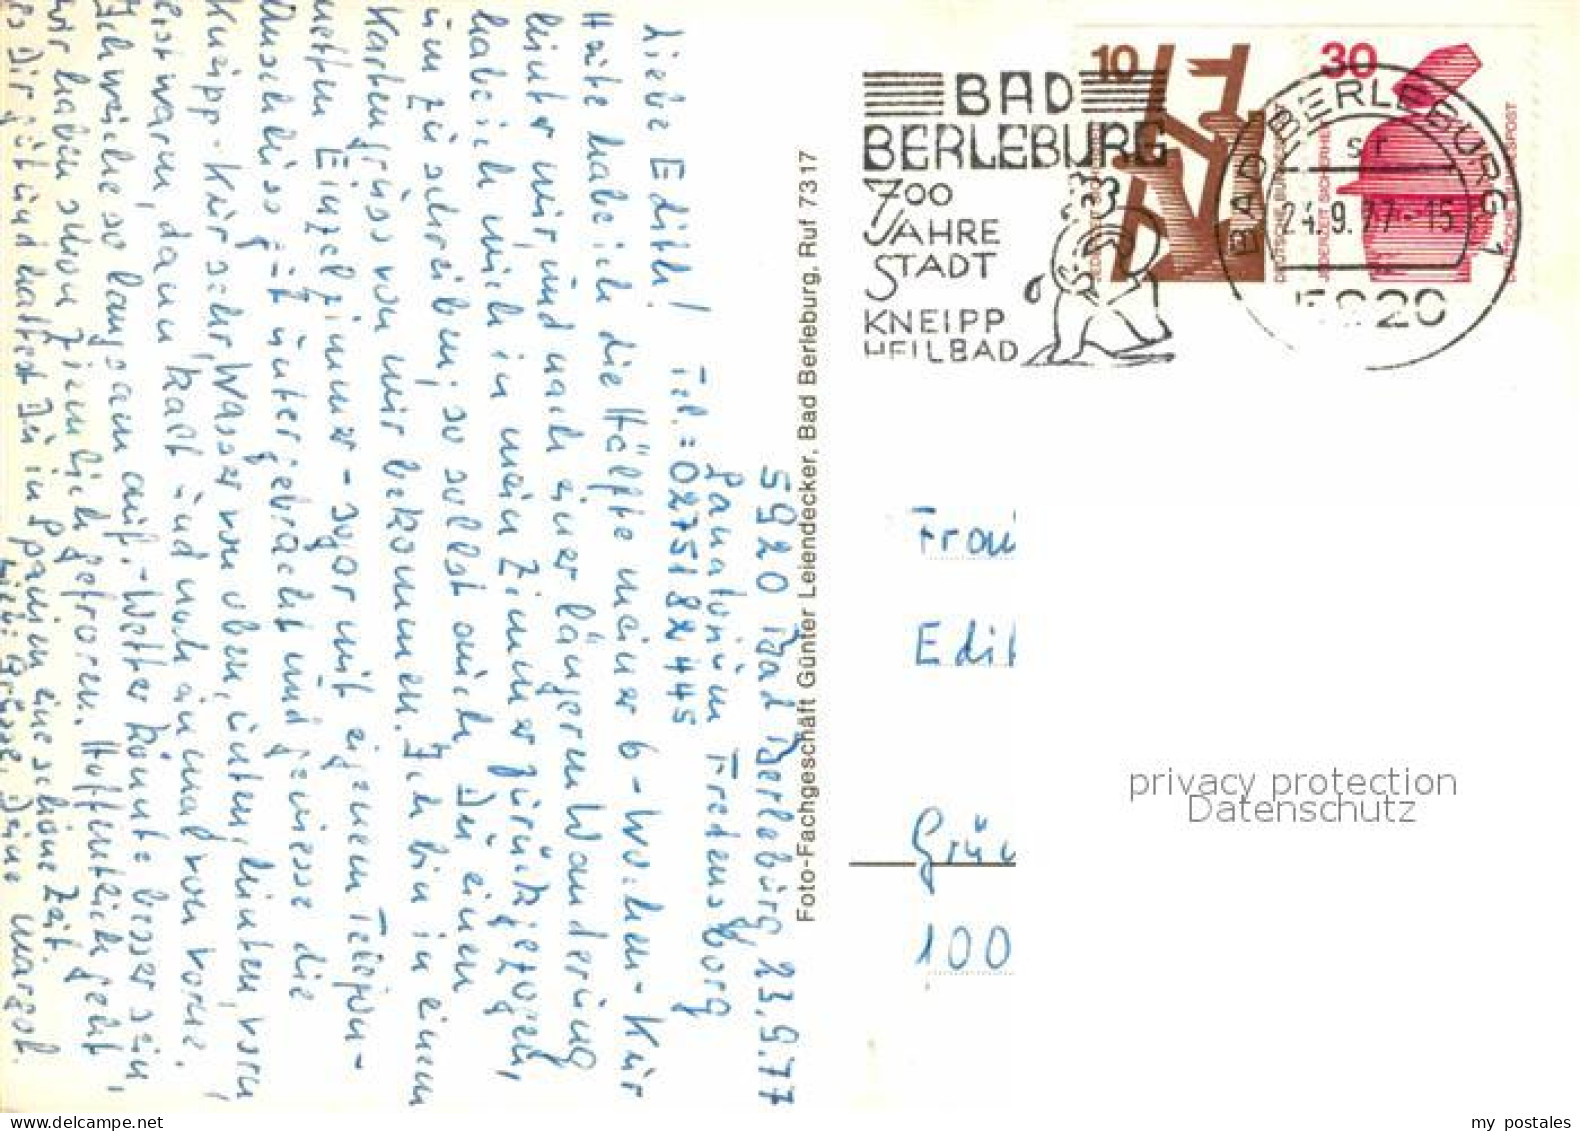 5920 Bad Berleburg, 23.9.77
Sanatorium Fredensborg
Tel.: 02751 82445
Liebe Edith!
Heute habe ich die Hälfte meiner 6-Wochen-Kur
hinter mir, und nach einer längeren Wanderung
habe ich mich in mein Zimmer zurückgezogen,
um zu schreiben; so sollst auch Du einen
Kartengruss von mir bekommen. Ich bin in einem
netten Einzelzimmer - sogar mit eigenem Telefon-
Anschluss - gut untergebracht und geniesse die
Kneipp-Kur sehr, Wasser von oben, unten, hinten, vorn,
erst warm, dann kalt und noch einmal von vorne.
Ich weiche so langsam auf. - Wetter könnte besser sein,
wir haben schon ziemlich gefroren. Hoffentlich geht
es Dir gut und hattest Du in Spanien eine schöne Zeit.
Liebe Grüsse, Deine Margot.
Foto-Fachgeschäft Günter Leiendecker, Bad Berleburg, Ruf 7317
BAD
BERLEBURG
700
JAHRE
STADT
KNEIPP
HEILBAD
10
30
DEUTSCHE BUNDESPOST
JEDERZEIT SICHERHEIT
BAD BERLEBURG 1
sr
24.9.77-15
5920
Frau
Edit
Grün
100
privacy protection
Datenschutz
my postales